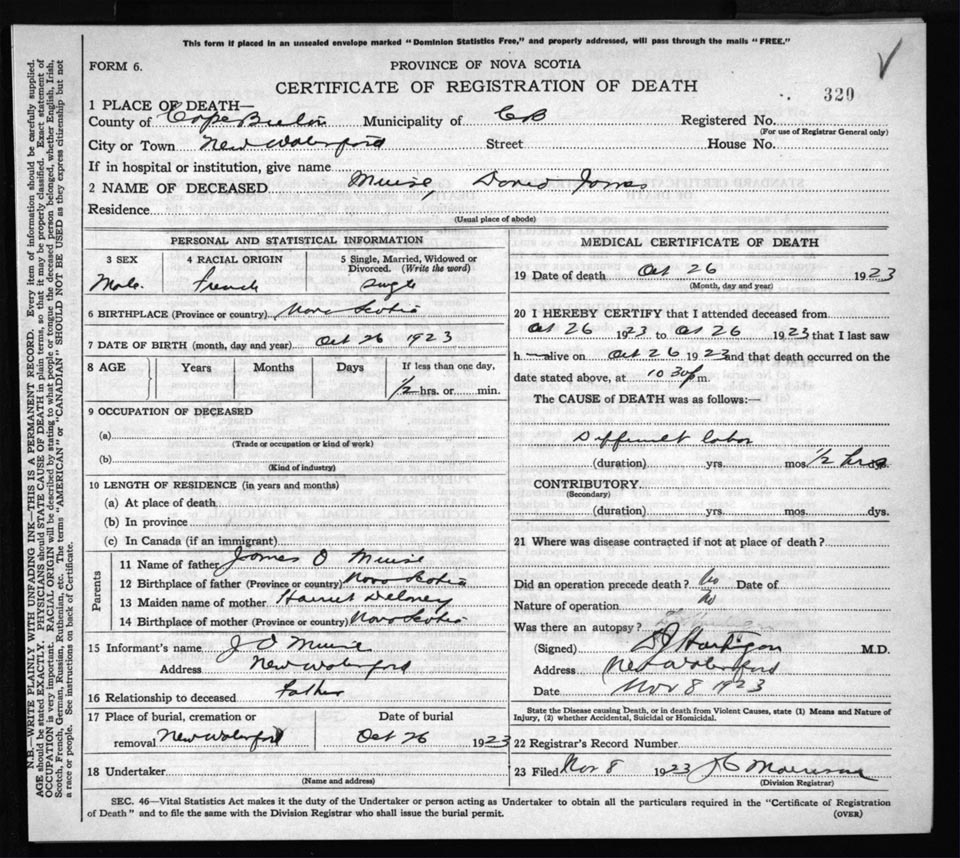 This form if placed in an unsealed envelope marked "Dominion Statistics Free," and properly addressed, will pass through the mails "FREE."
FORM 6.
PROVINCE OF NOVA SCOTIA
CERTIFICATE OF REGISTRATION OF DEATH
329
1 PLACE OF DEATH—
County of Cape Breton Municipality of CB Registered No.
(For use of Registrar General only)
City or Town New Waterford Street House No.
If in hospital or institution, give name
2 NAME OF DECEASED Muise, David James
Residence
(Usual place of abode)
PERSONAL AND STATISTICAL INFORMATION
3 SEX 4 RACIAL ORIGIN 5 Single, Married, Widowed or Divorced. (Write the word)
Male French Single
6 BIRTHPLACE (Province or country) Nova Scotia
7 DATE OF BIRTH (month, day and year) Oct 26 1923
8 AGE Years Months Days If less than one day,
1/2 hrs. or min.
9 OCCUPATION OF DECEASED
(a)
(Trade or occupation or kind of work)
(b)
(Kind of industry)
10 LENGTH OF RESIDENCE (in years and months)
(a) At place of death
(b) In province
(c) In Canada (if an immigrant)
Parents
11 Name of father James O Muise
12 Birthplace of father (Province or country) Nova Scotia
13 Maiden name of mother Harriet Delaney
14 Birthplace of mother (Province or country) Nova Scotia
15 Informant's name J O Muise
Address New Waterford
16 Relationship to deceased Father
17 Place of burial, cremation or Date of burial
removal New Waterford Oct 26 1923
18 Undertaker
(Name and address)
MEDICAL CERTIFICATE OF DEATH
19 Date of death Oct 26 1923
(Month, day and year)
20 I HEREBY CERTIFY that I attended deceased from
Oct 26 1923 to Oct 26 1923 that I last saw
h alive on Oct 26 1923 and that death occurred on the
date stated above, at 10 30 p m.
The CAUSE of DEATH was as follows:—
Difficult labor
(duration) yrs. mos. 1/2 hrs
CONTRIBUTORY
(Secondary)
(duration) yrs. mos. dys.
21 Where was disease contracted if not at place of death?
Did an operation precede death? No Date of
Nature of operation No
Was there an autopsy?
(Signed) M.D.
Address New Waterford
Date Nov 8 1923
State the Disease causing Death, or in death from Violent Causes, state (1) Means and Nature of
Injury, (2) whether Accidental, Suicidal or Homicidal.
22 Registrar's Record Number
23 Filed Nov 8 1923 J C Morrison
(Division Registrar)
SEC. 46—Vital Statistics Act makes it the duty of the Undertaker or person acting as Undertaker to obtain all the particulars required in the "Certificate of Registration
of Death" and to file the same with the Division Registrar who shall issue the burial permit.
(OVER)
N.B.—WRITE PLAINLY WITH UNFADING INK—THIS IS A PERMANENT RECORD. Every item of information should be carefully supplied.
AGE should be stated EXACTLY. PHYSICIANS should STATE CAUSE OF DEATH in plain terms, so that it may be properly classified. Exact statement of
OCCUPATION is very important. RACIAL ORIGIN will be described by stating to what people or tongue the deceased person belonged, whether English, Irish,
Scotch, French, German, Russian, Ruthenian, etc. The terms "AMERICAN" or "CANADIAN" SHOULD NOT BE USED as they express citizenship but not
a race or people. See instructions on back of Certificate.